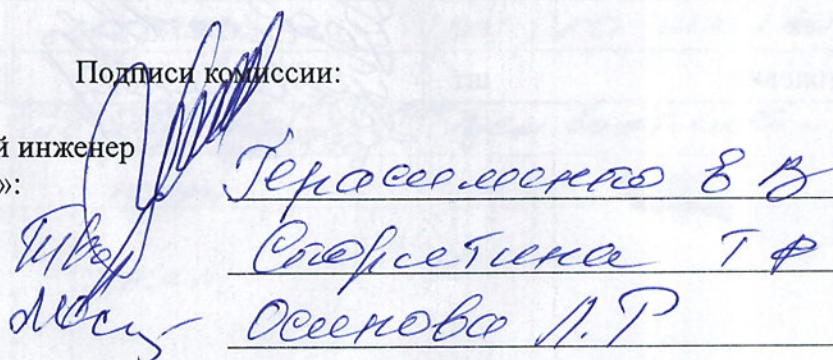 Подписи комиссии:
й инженер
»: Герасименко Е В
Т Ф
Осипова Л.Р